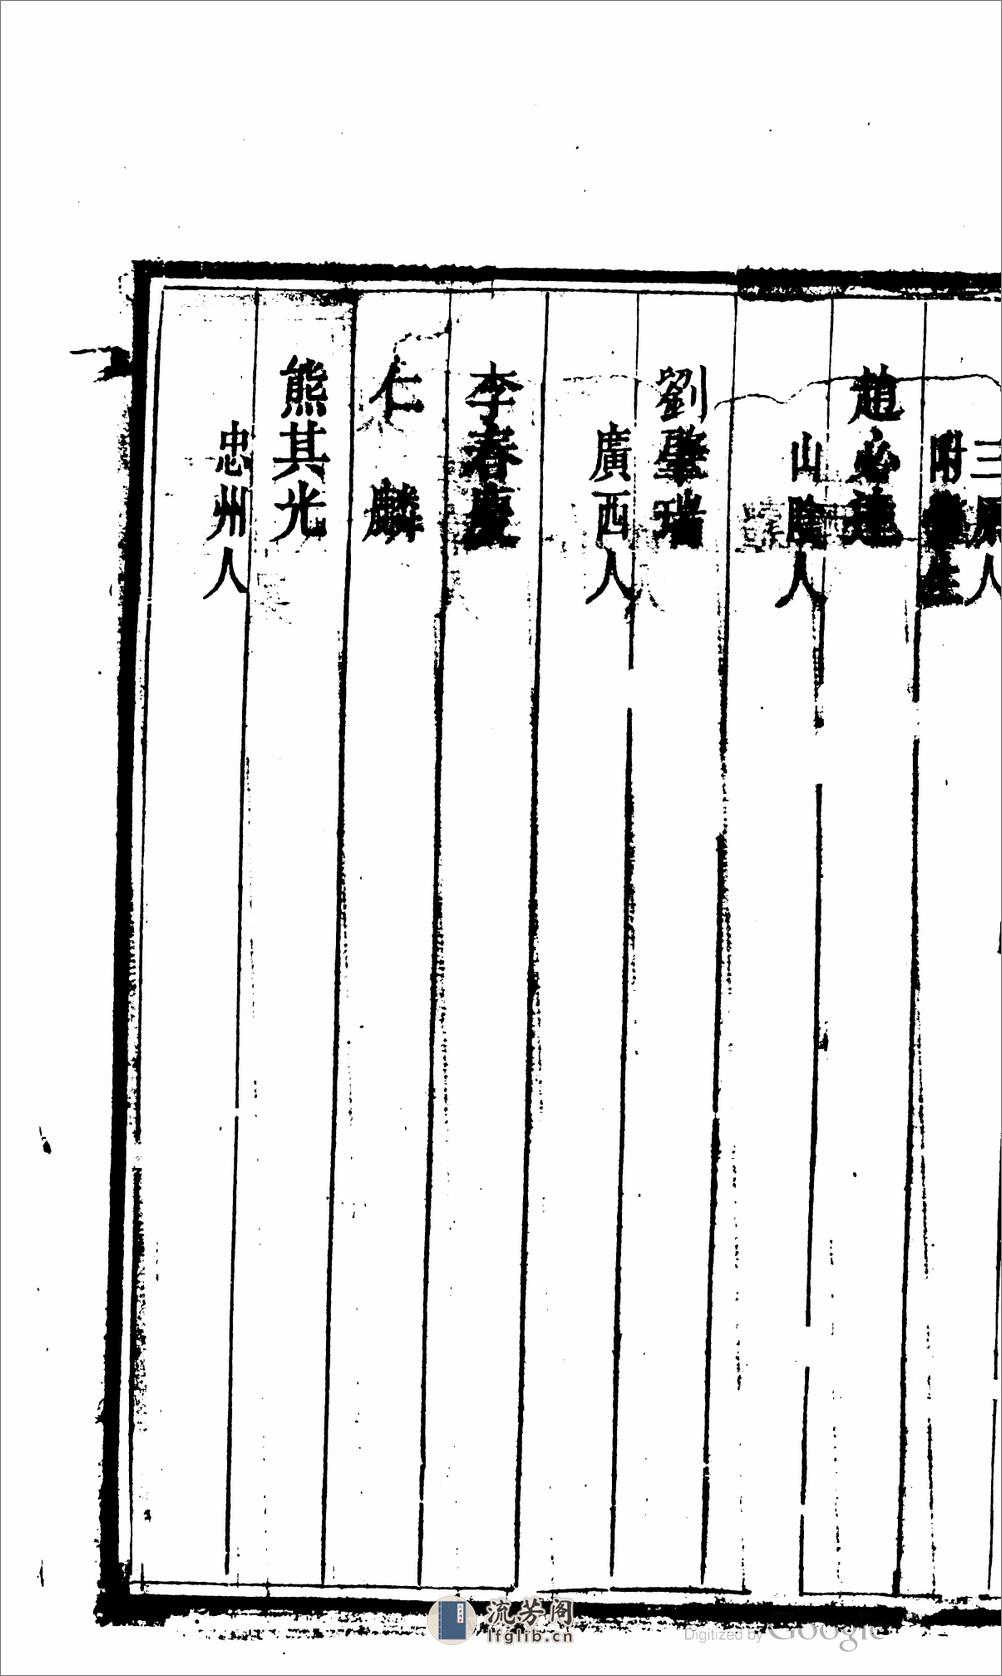 三原人
附貢生
趙必達
山陰人
劉肇瑞
廣西人
李春慶
仁麟
熊其光
忠州人
流芳阁
lfglib.cn
Digitized by Google